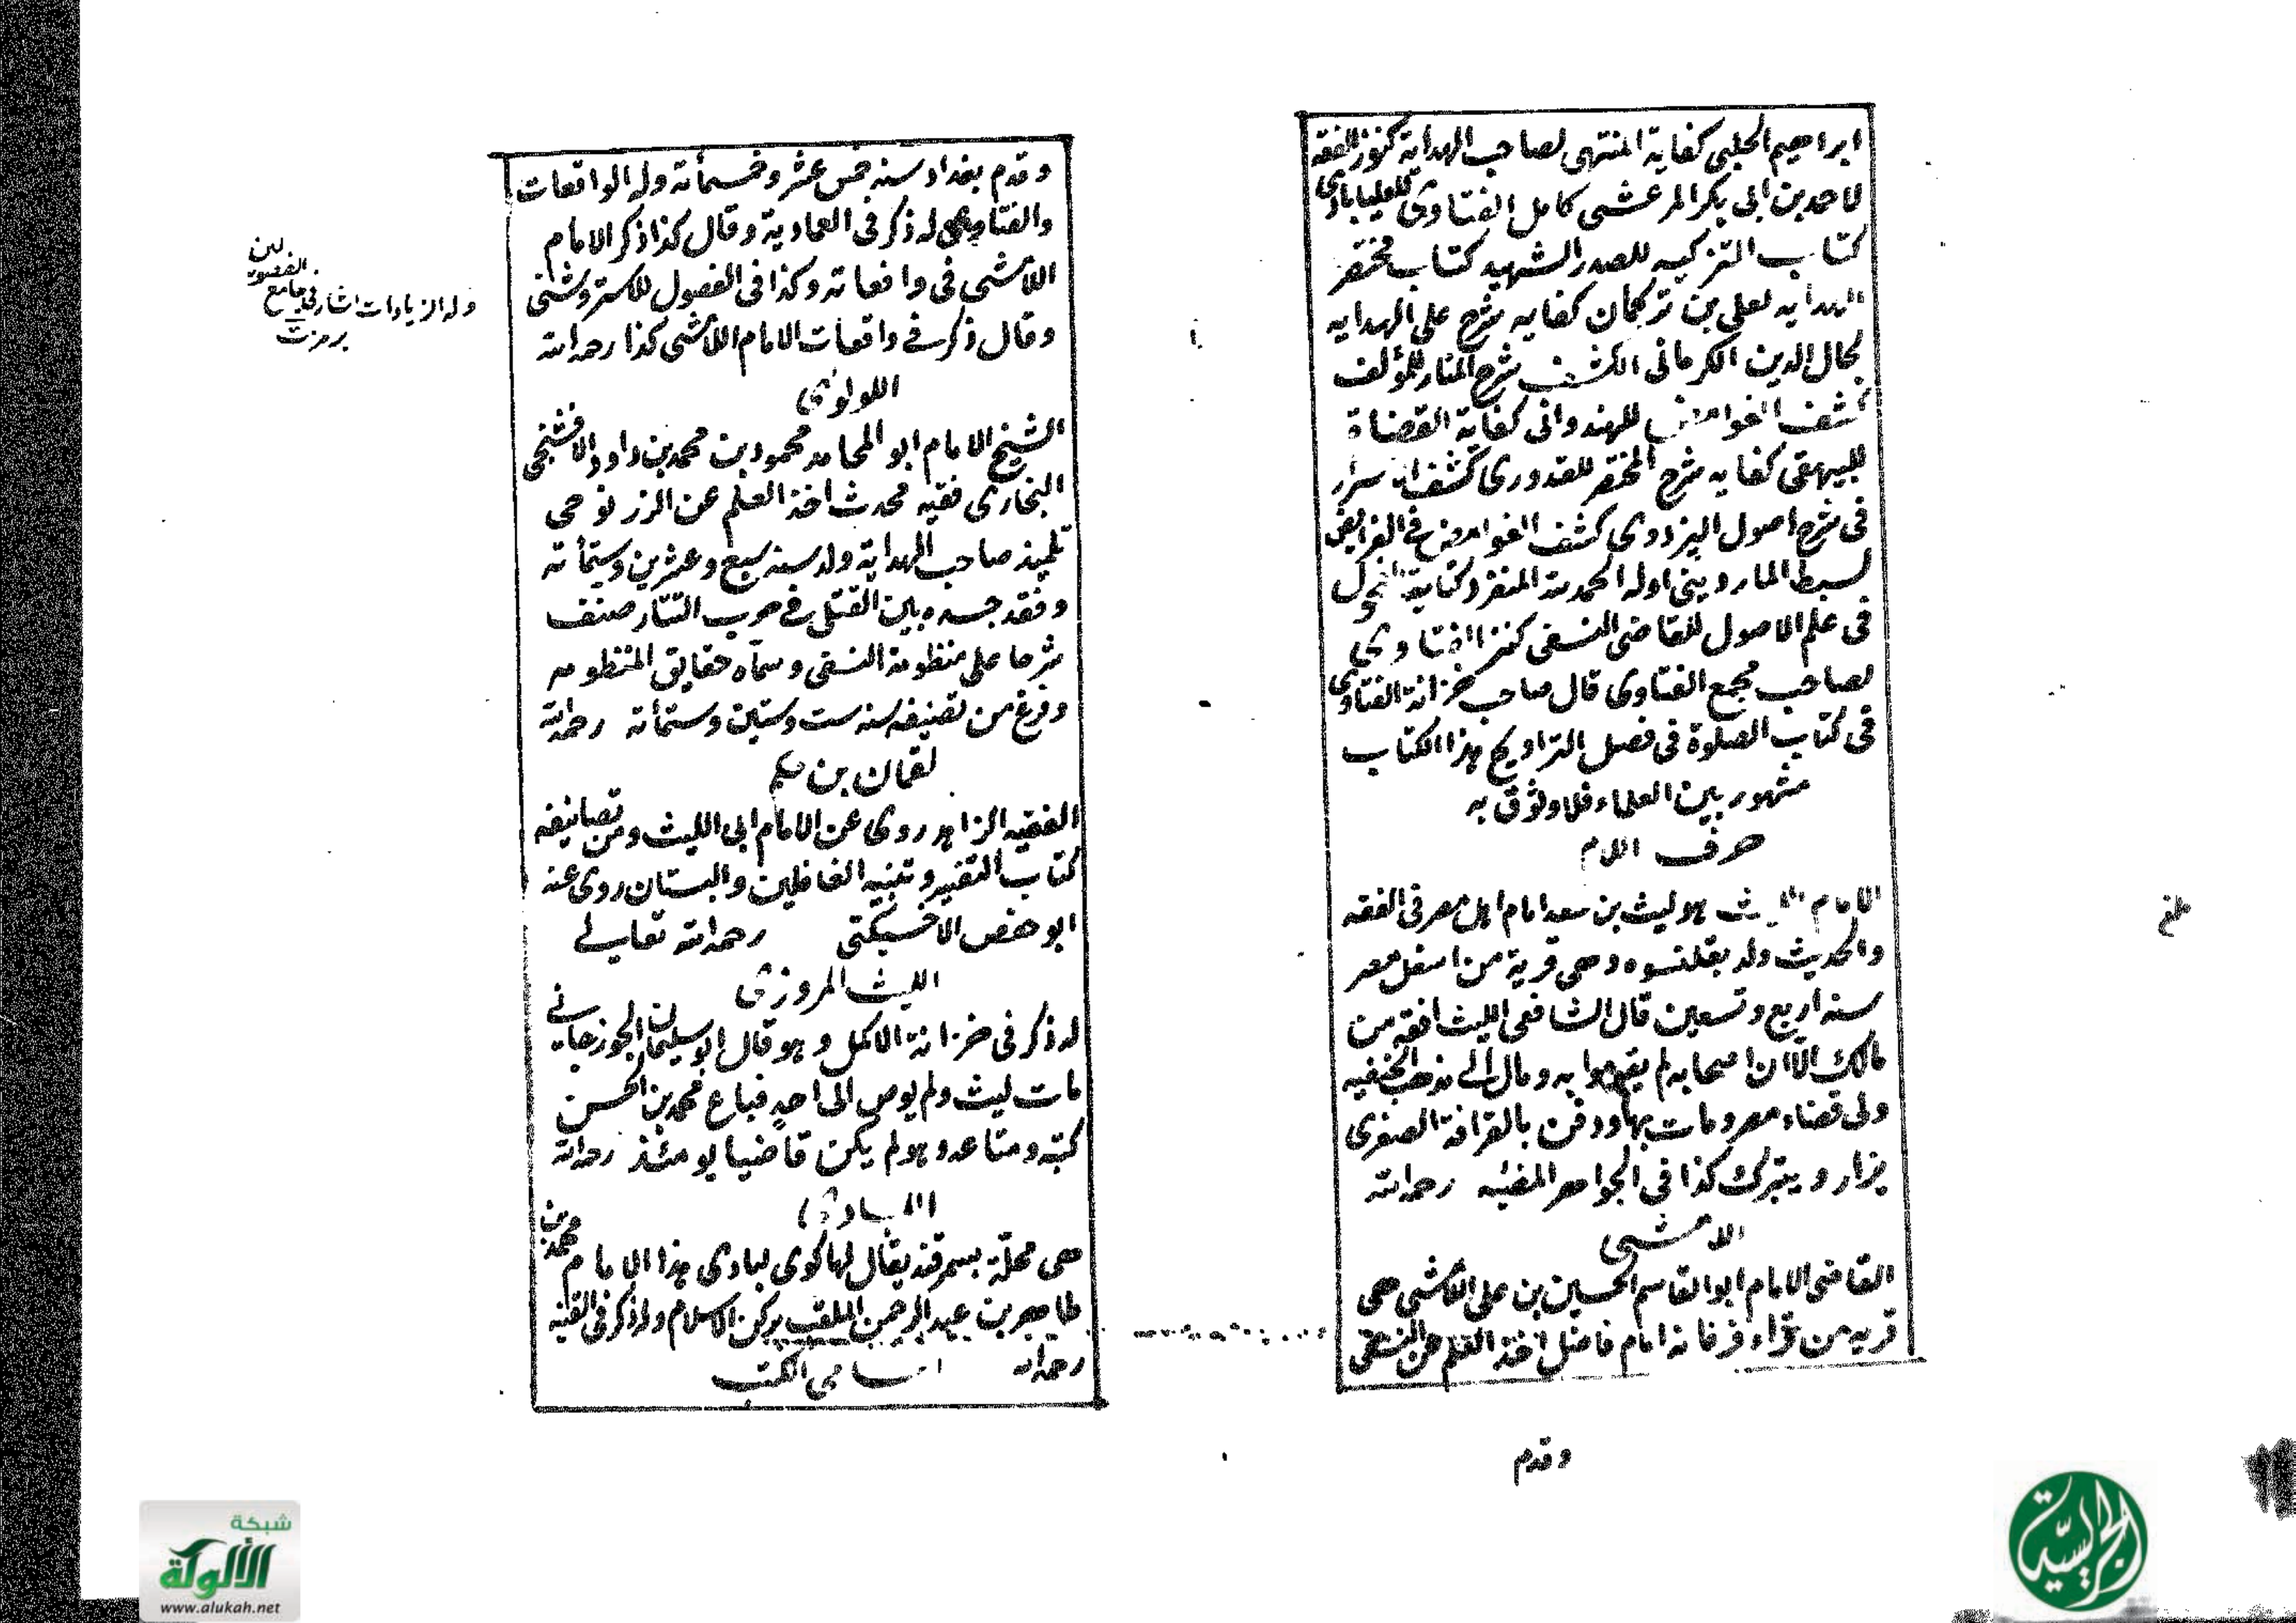 ابراهيم الحلبى كفاية المنتهى لصاحب الهداية كنوز الفقه
لاحمد بن ابى بكر المرعشى كامل الفتاوى للعليابادى
كتاب التزكيه للصدر الشهيد كتاب مختصر
الهدايه لعلى بن تركمان كفايه شرح على الهدايه
لجال الدين الكرمانى الكشف شرح المنار للمؤلف
كشف الغوامض للهندوانى كفاية القضاة
للبيهقى كفايه شرح المختصر للقدورى كشف الاسرار
فى شرح اصول البزدوى كشف الغوامض فى الفرايض
لسبط الماردينى اوله الحمد لله المنفرد كتاية الفحول
فى علم الاصول للقاضى النسفى كنز الفتاوى
لصاحب مجمع الفتاوى قال صاحب خزانة الفتاوى
فى كتاب الصلوة فى فصل التراويح هذا الكتاب
مشهور بين العلماء فلا وثوق به
حرف اللام
الامام الليث هو ليث بن سعد امام اهل مصر فى الفقه
والحديث ولد بقلنسوه وهى قرية من اسفل مصر
سنة اربع وتسعين قال الشافعى الليث افقه من
مالك الا ان اصحابه لم يقوموا به ومال الى مذهب الحنفيه
ولى قضاء مصر ومات بها ودفن بالقرافة الصغرى
يزار ويتبرك كذا فى الجواهر المضيه رحمه الله
اللامشى
القاضى الامام ابو القاسم الحسين بن على اللامشى هى
قريه من قراء فرغانه امام فاضل اخذ العلم عن النسفى
وقدم
وقدم بغداد سنه خمس عشر وخمسمأئة وله الواقعات
والفتاوى له ذكر فى العمادية وقال كذا ذكر الامام
اللامشى فى واقعاته وكذا فى الفصول للاستروشنى
وقال ذكر فى واقعات الامام اللامشى كذا رحمه الله
وله الزيادات اشار فى جامع
الفصولين
برمزت
اللولوى
الشيخ الامام ابو المحامد محمود بن محمد بن داود الافشنجى
البخارى فقيه محدث اخذ العلم عن الزرنوجى
تلميذ صاحب الهداية ولد سنه سبع وعشرين وستمأته
وفقد جسده بين القتلى فى حرب التتار صنف
شرحا على منظومة النسفى وسماه حقايق المنظومه
وفرغ من تصنيفه سنه ست وستين وستمأئة رحمه الله
لقمان بن حكيم
الفقيه الزاهد روى عن الامام ابى الليث ومن تصانيفه
كتاب التفسير وتنبيه الغافلين والبستان روى عنه
ابو حفص الاخسيكتى رحمه الله تعالى
الليث المروزى
له ذكر فى خزانة الاكمل وهو قال ابو سليمان الجوزجانى
مات ليث ولم يوص الى احد فباع محمد بن الحسن
كتبه ومتاعه وهو لم يكن قاضيا يومئذ رحمه الله
اللبادى
هى محلة بسمرقند يقال لها كوى لبادى هذا الامام محمد بن
طاهر بن عبد الرحمن الملقب بركن الاسلام وله ذكر فى القنيه
رحمه الله اسامى الكتب
شبكة
الألوكة
www.alukah.net